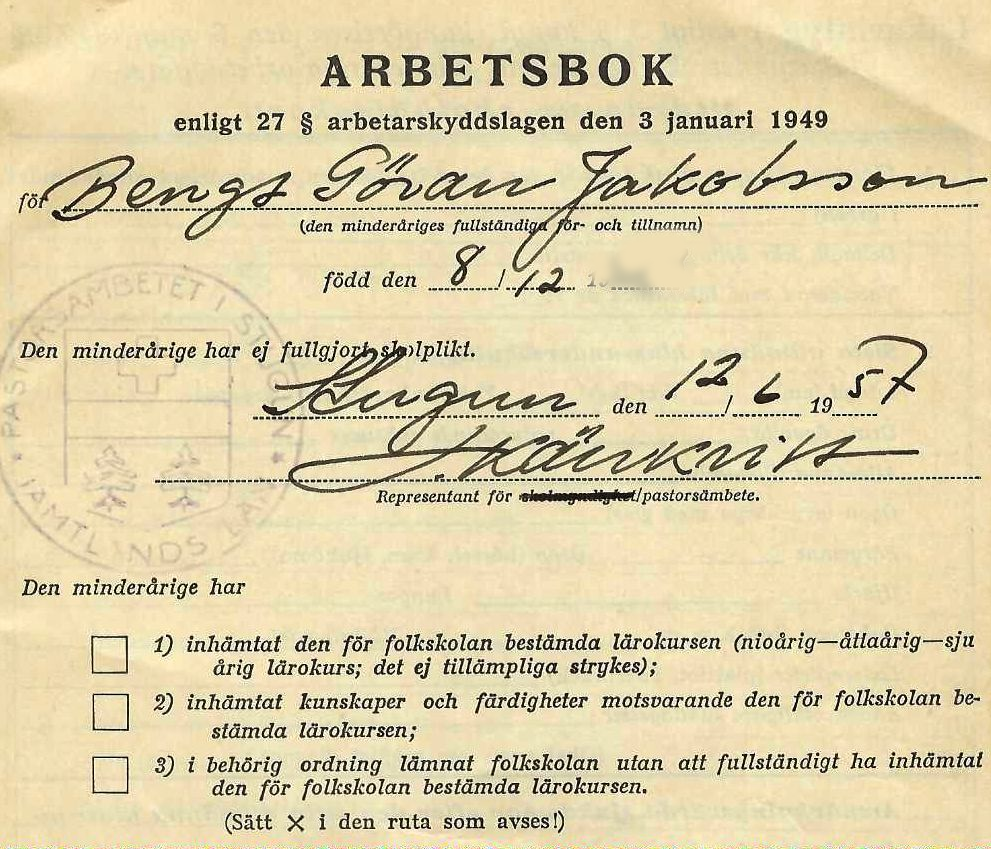 ARBETSBOK
enligt 27 § arbetarskyddslagen den 3 januari 1949
för Bengt Göran Jakobsson
(den minderåriges fullständiga för- och tillnamn)
född den 8/12
Den minderårige har ej fullgjort skolplikt.
Stugun den 12/6 1957
Representant för skolmyndighet/pastorsämbete.
PASTORSÄMBETET I STUGUN
JÄMTLANDS LÄN
Den minderårige har
1) inhämtat den för folkskolan bestämda lärokursen (nioårig—åttaårig—sju
årig lärokurs; det ej tillämpliga strykes);
2) inhämtat kunskaper och färdigheter motsvarande den för folkskolan be-
stämda lärokursen;
3) i behörig ordning lämnat folkskolan utan att fullständigt ha inhämtat
den för folkskolan bestämda lärokursen.
(Sätt × i den ruta som avses!)